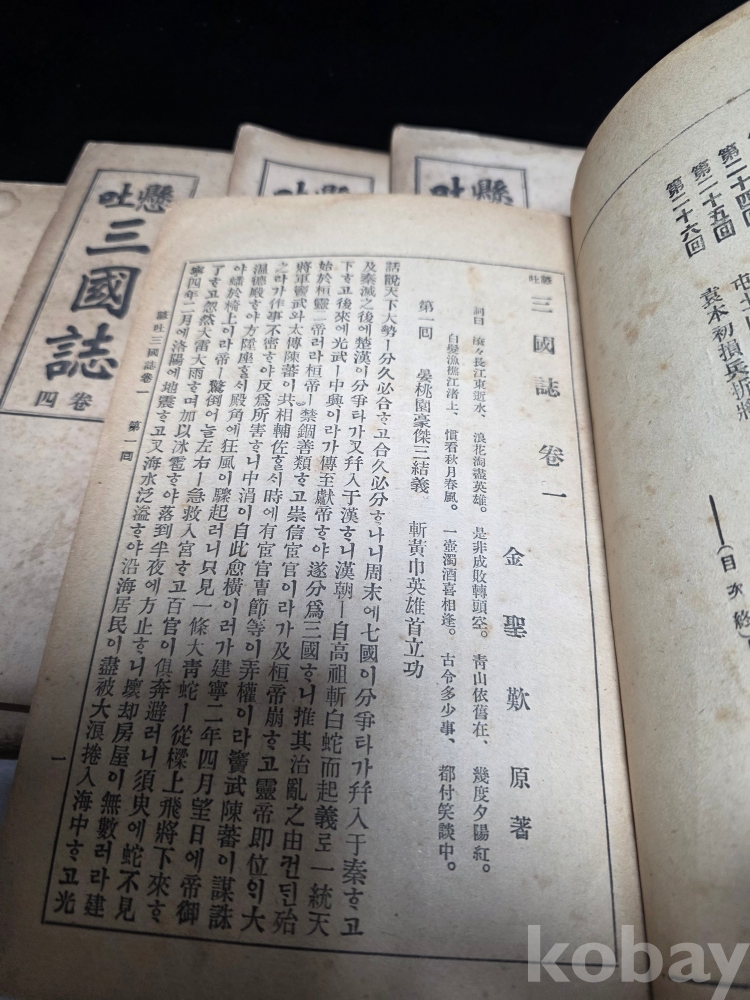 懸吐 三國誌 卷四
懸吐
懸吐
懸吐 三國誌 卷一
金聖歎 原著
詞曰 滾々長江東逝水、 浪花淘盡英雄。 是非成敗轉頭空。 靑山依舊在、 幾度夕陽紅。
白髮漁樵江渚上、 慣看秋月春風。 一壺濁酒喜相逢。 古今多少事、 都付笑談中。
第一回 宴桃園豪傑三結義 斬黃巾英雄首立功
話說天下大勢ㅣ分久必合ᄒᆞ고合久必分ᄒᆞ나니周末에七國이分爭타가幷入于秦ᄒᆞ고
及秦滅之後에楚漢이分爭타가又幷入于漢ᄒᆞ니漢朝ㅣ自高祖斬白蛇而起義로一統天
下ᄒᆞ고後來에光武ㅣ中興이라가傳至獻帝ᄒᆞ야遂分爲三國ᄒᆞ니推其治亂之由컨딘殆
始於桓靈二帝러라桓帝ㅣ禁錮善類ᄒᆞ고崇信宦官이라가及桓帝崩ᄒᆞ고靈帝卽位의大
將軍竇武와太傅陳蕃이共相輔佐ᄒᆞᆯ시時에有宦官曹節等이弄權이라竇武陳蕃이謀誅
之라가作事不密ᄒᆞ야反爲所害ᄒᆞ니中涓이自此愈橫이러가建寧二年四月望日에帝御
溫德殿ᄒᆞ야方陞座ᄒᆞᆯ시殿角에狂風이驟起러니只見一條大靑蛇ㅣ從樑上飛將下來ᄒᆞ
야蟠於椅上이라帝ㅣ驚倒어늘左右ㅣ急救入宮ᄒᆞ고百官이俱奔避러니須臾에蛇不見
了ᄒᆞ고忽然大雷大雨ᄒᆞ며加以冰雹ᄒᆞ야落到半夜에方止ᄒᆞ니壞却房屋이無數러라建
寧四年二月에洛陽에地震ᄒᆞ고又海水泛溢ᄒᆞ야沿海居民이盡被大浪捲入海中ᄒᆞ고光
懸吐三國誌卷一 第一回
一
第二十四回
第二十五回
第二十六回 袁本初損兵折將
(目次終)
kobay